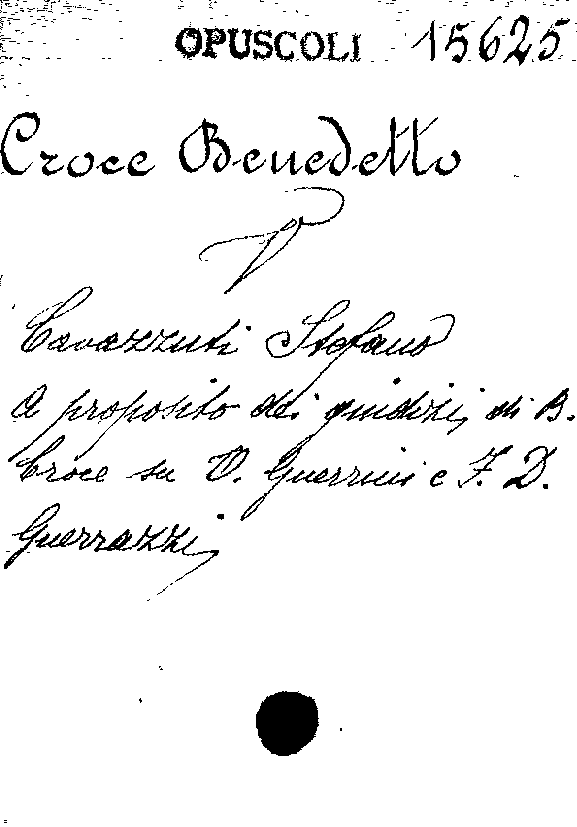 OPUSCOLI 15625
Croce Benedetto
V
Cavazzuti Stefano
A proposito dei giudizi, di B.
Croce su O. Guerrini e F. D.
Guerrazzi,